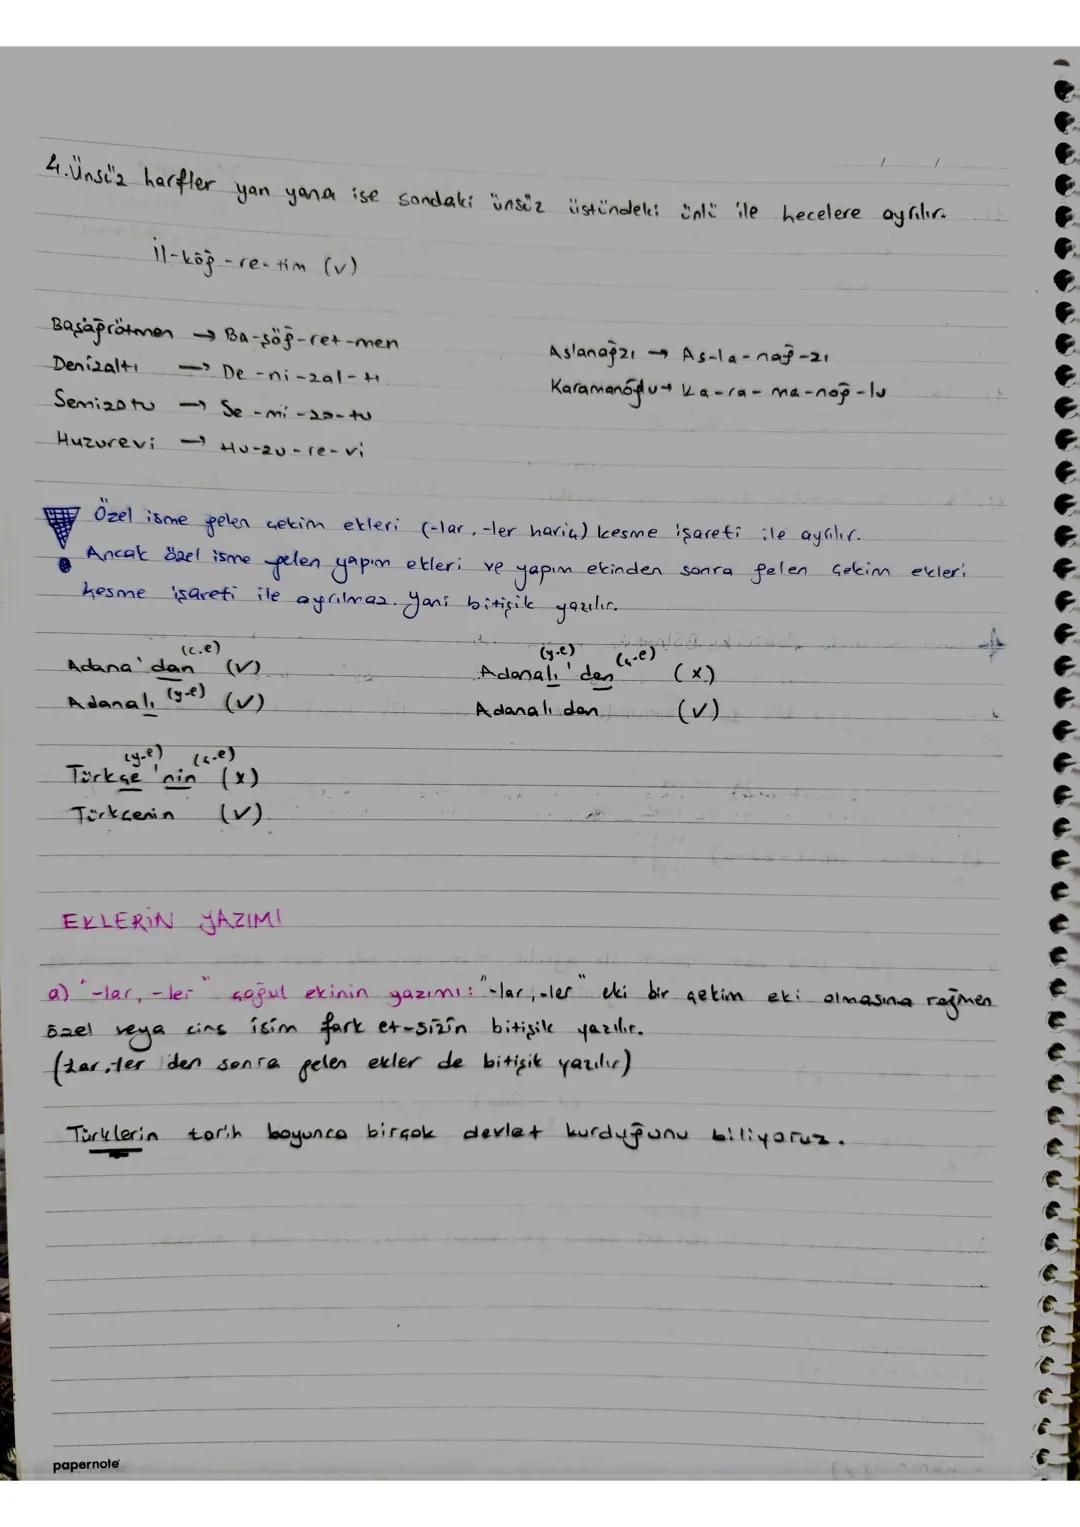 4. Ünsüz harfler yan yana ise sondaki ünsüz üstündeki ünlü ile hecelere ayrılır.
İl-köğ-re-tim (v)
Başöğretmen → Ba-şöğ-ret-men
Denizaltı → De-ni-zal-tı
Semizotu → Se-mi-zo-tu
Huzurevi → Hu-zu-re-vi
Aslanağzı → As-la-nağ-zı
Karamanoğlu → Ka-ra-ma-noğ-lu
Özel isme gelen çekim ekleri (-lar, -ler hariç) kesme işareti ile ayrılır.
Ancak özel isme gelen yapım ekleri ve yapım ekinden sonra gelen çekim ekleri
kesme işareti ile ayrılmaz. Yani bitişik yazılır.
(ç.e)
Adana'dan (v)
Adanalı (y-e) (v)
(y-e) (ç-e)
Adanalı'dan (x)
Adanalıdan (v)
(y-e) (ç-e)
Türkçe'nin (x)
Türkçenin (v)
EKLERİN YAZIMI
a) "-lar, -ler" çoğul ekinin yazımı: "-lar, -ler" eki bir çekim eki olmasına rağmen
özel veya cins isim fark et-sizin bitişik yazılır.
(lar, ler den sonra gelen ekler de bitişik yazılır)
Türklerin tarih boyunca birçok devlet kurduğunu biliyoruz.
papernote